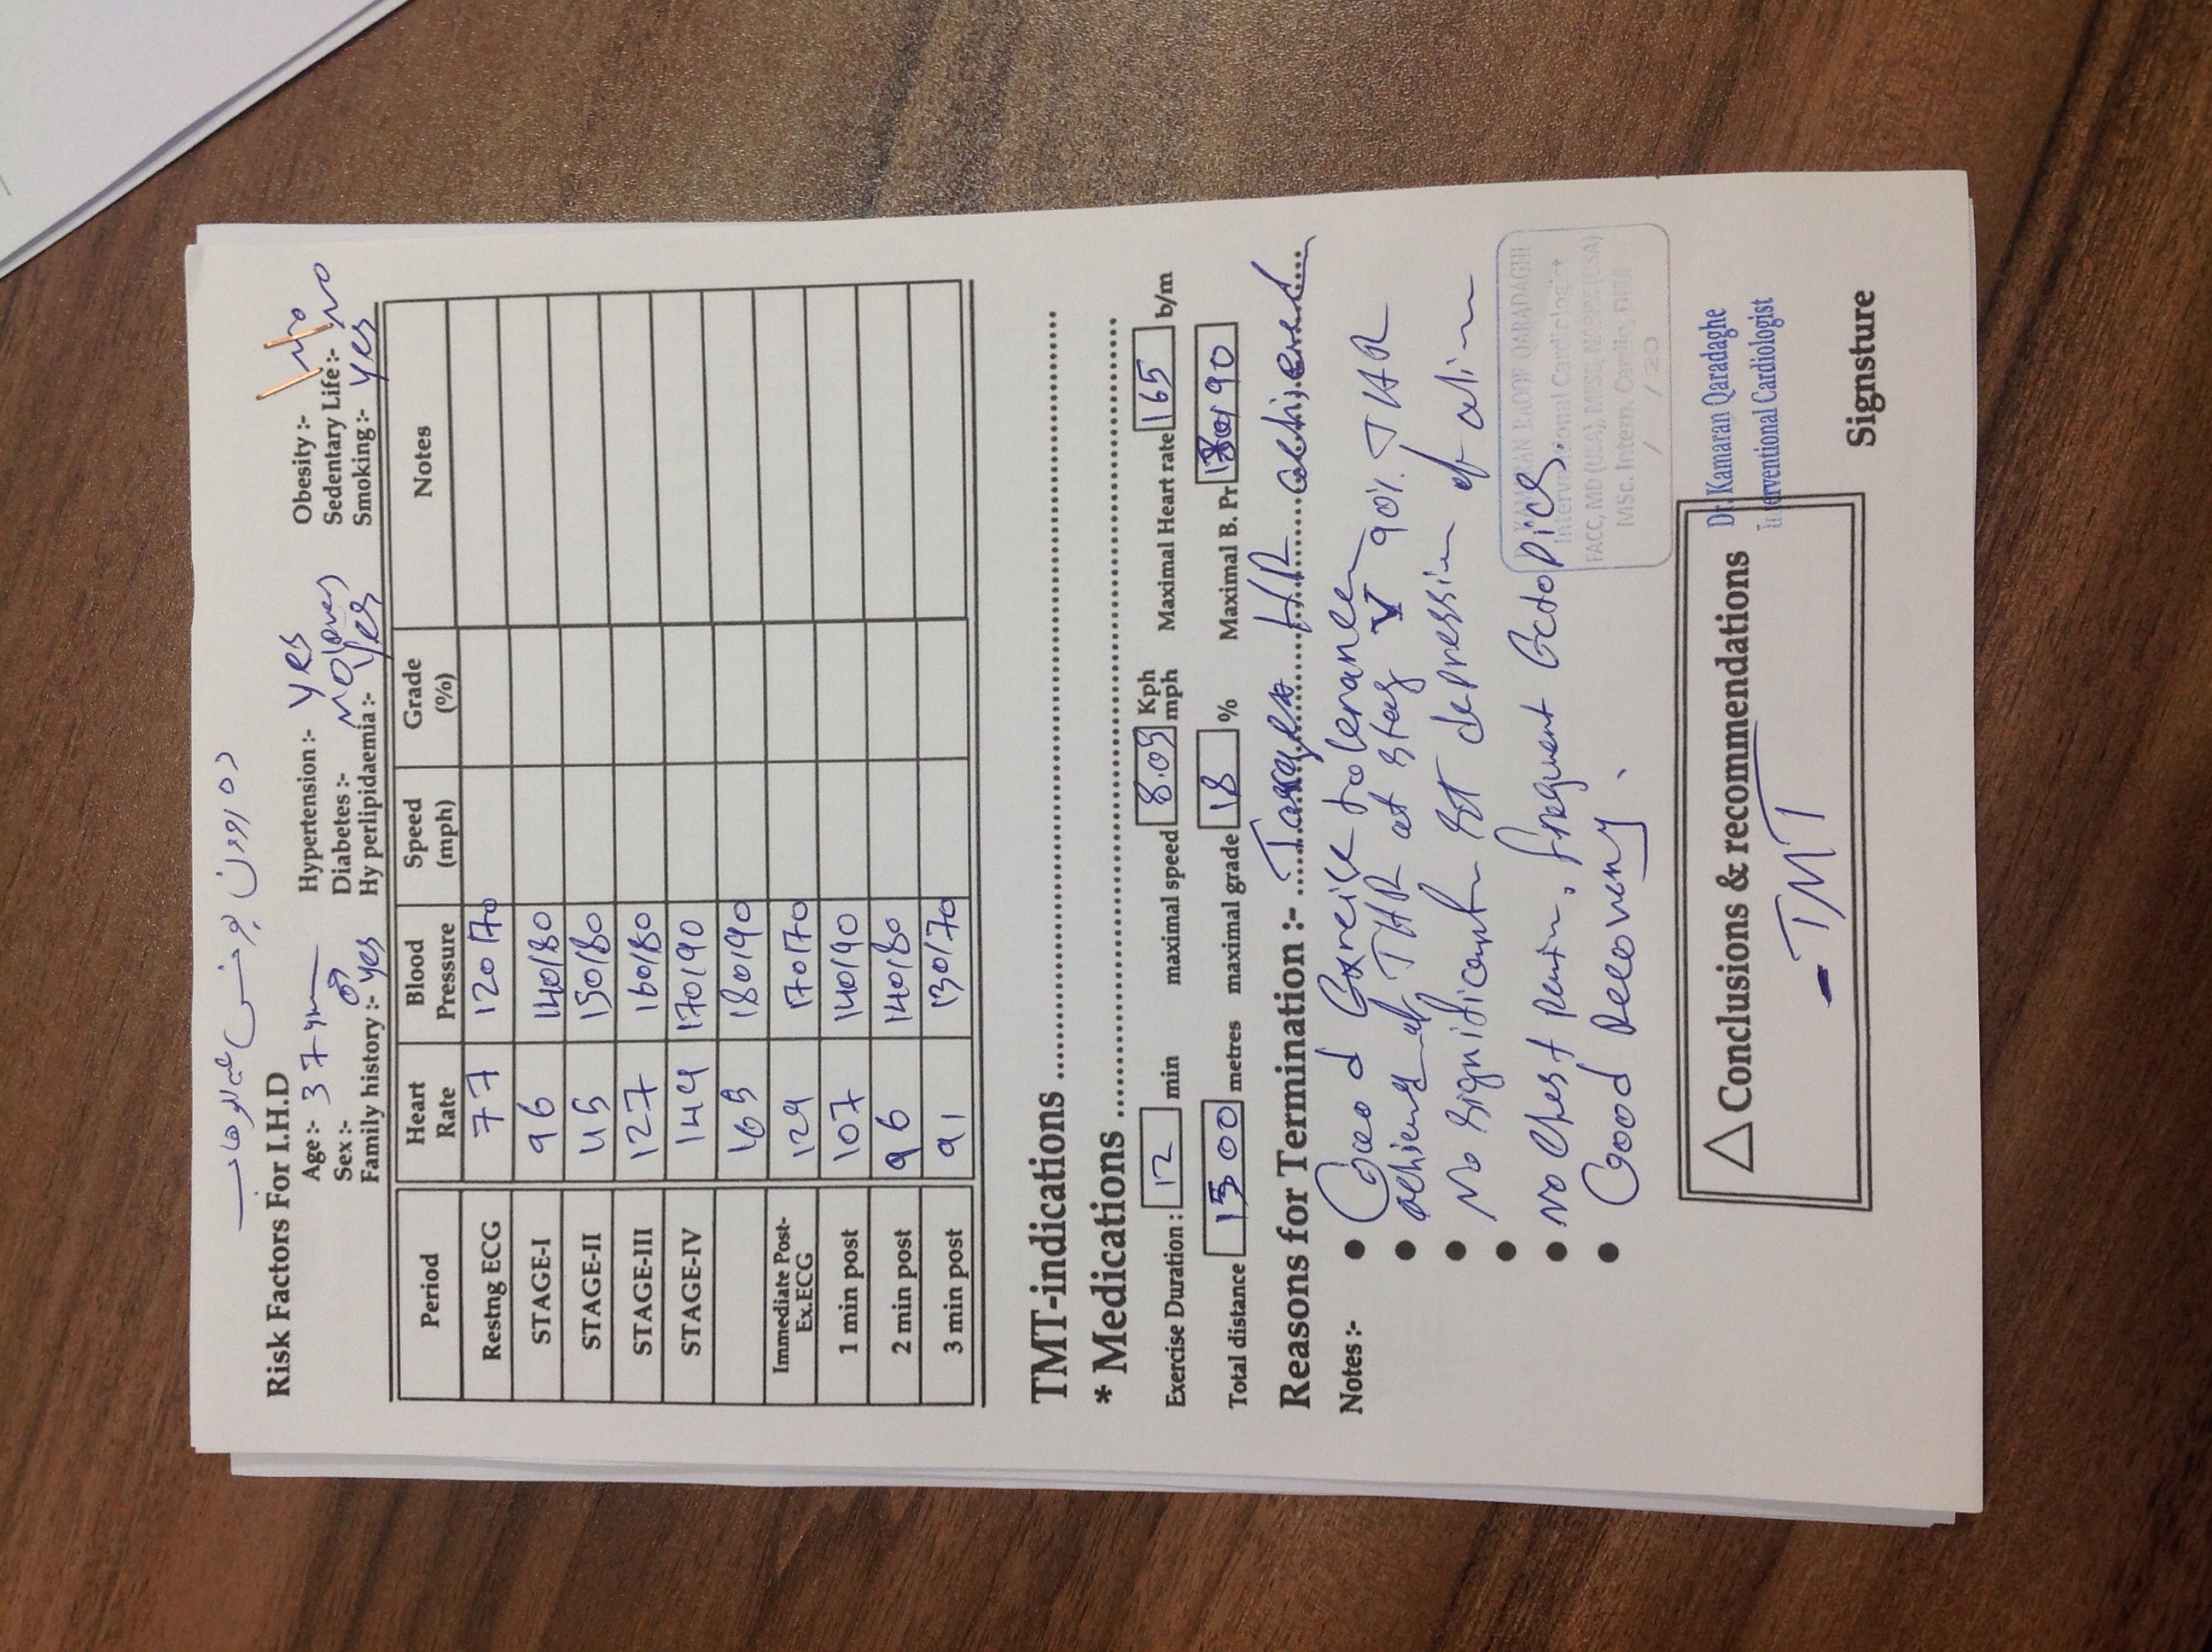 Risk Factors For I.H.D
Age :- 37 Hypertension :- Yes Obesity :- no
Sex :- ♂ Diabetes :- No Sedentary Life :- No
Family history :- yes Hy perlipidaemia :- Yes Smoking :- Yes
Period Heart Rate Blood Pressure Speed (mph) Grade (%) Notes
Restng ECG 77 120/70
STAGE-I 96 140/80
STAGE-II 150/80
STAGE-III 127 160/80
STAGE-IV 144 170/90
165 180/90
Immediate Post-Ex.ECG 129 170/70
1 min post 107 140/90
2 min post 96 140/80
3 min post 91 130/70
TMT-indications
* Medications
Exercise Duration : 12 min maximal speed 8.05 Kph mph Maximal Heart rate 165 b/m
Total distance 1300 metres maximal grade 18 % Maximal B. Pr 180/90
Reasons for Termination :- Target HR achieved
Notes :- • Good Exercise tolerance
• achieved THR at stage V 90% THR
• No significant ST depression
•
• No Chest Pain, frequent Ectopics.
• Good Recovery.
KAMARAN RAOOF QARADAGHI
Interventional Cardiologist
FACC, MD (USA), MSC,
MSc. Interv. Cardio, DIM
/ / 20
△ Conclusions & recommendations
- TMT
Dr. Kamaran Qaradaghe
Interventional Cardiologist
Signsture